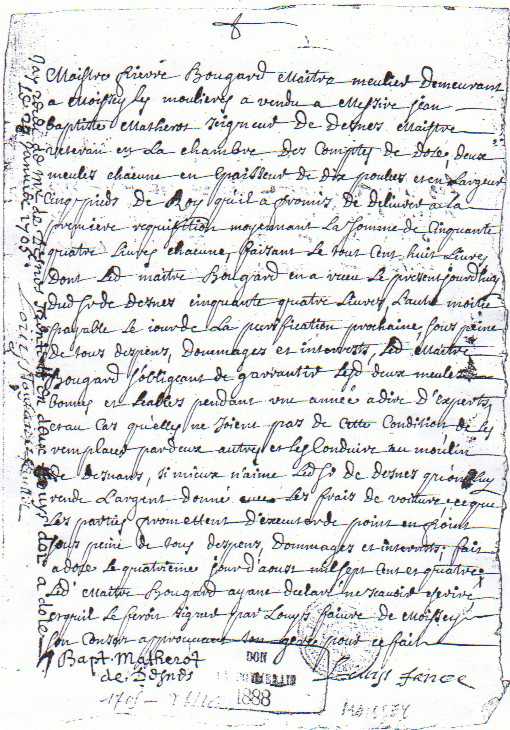 Maistre pierre Bougard Maitre meulier Demeurant
a Moissey les moulieres a vendu a Messire jean
baptiste Matherot seigneur de desnes Maistre
veteran en La chambre Des Comptes de dole, deux
meules chacune en Epaisseur de Dix poulces et en Largeur
Cinq pieds de Roy quil a promis de delivrer a la
premiere requisition moyennant La somme de Cinquante
quatre Livres chacune, faisant Le tout Cent huit Livres
Dont Led maitre Bougard en a receu Le present jourdhuy
dud sr de desnes cinquante quatre Livres L'autre moitie
payable Le jour de La purification prochaine sous peine
de tous despens, dommages et interrests, Led Maitre
Bougard s'obligeant de garrantir Lesd deux meules
bonnes et Leables pendant une année a dire d'experts
et au Cas quelles ne soient pas de Cette Condition de les
remplacer par deux autres et les Conduire au moulin
de desnans, si mieux n'aime Led sr de desnes qu'on Luy
rende L'argent donné avec Les frais de voiture ce que
Les parties promettent d'executer de point en point
sous peine de tous despens, dommages et interrests; fait
a dole Le quatrieme jour d'aoust mil sept Cent et quatre
Led' Maitre Bougard ayant declaré ne scavoir escrire
et quil Le feroit signer par Louys faivre de Moissey
son approuvant pour ce fait
Bapt. Matherot
de Desnes
Louys
DON
1888
1705
MOISSEY
jay receu de mr de desnes en deux Louys dor a dole
Le janvier 1705